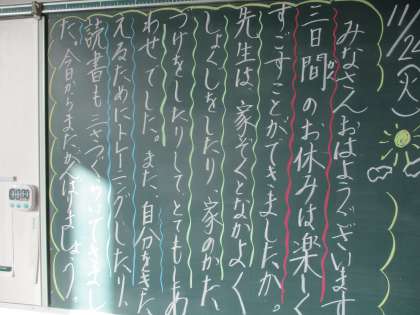 11/24(火)
みなさんおはようございます
三日間のお休みは楽しく
すごすことができましたか。
先生は、家ぞくとなかよく
しょくじをしたり、家のかた
づけをしたりしてとてもしあ
わせでした。また、自分をきた
えるためにトレーニングしたり、
読書も
た。今日からまた、がんばりましょう。